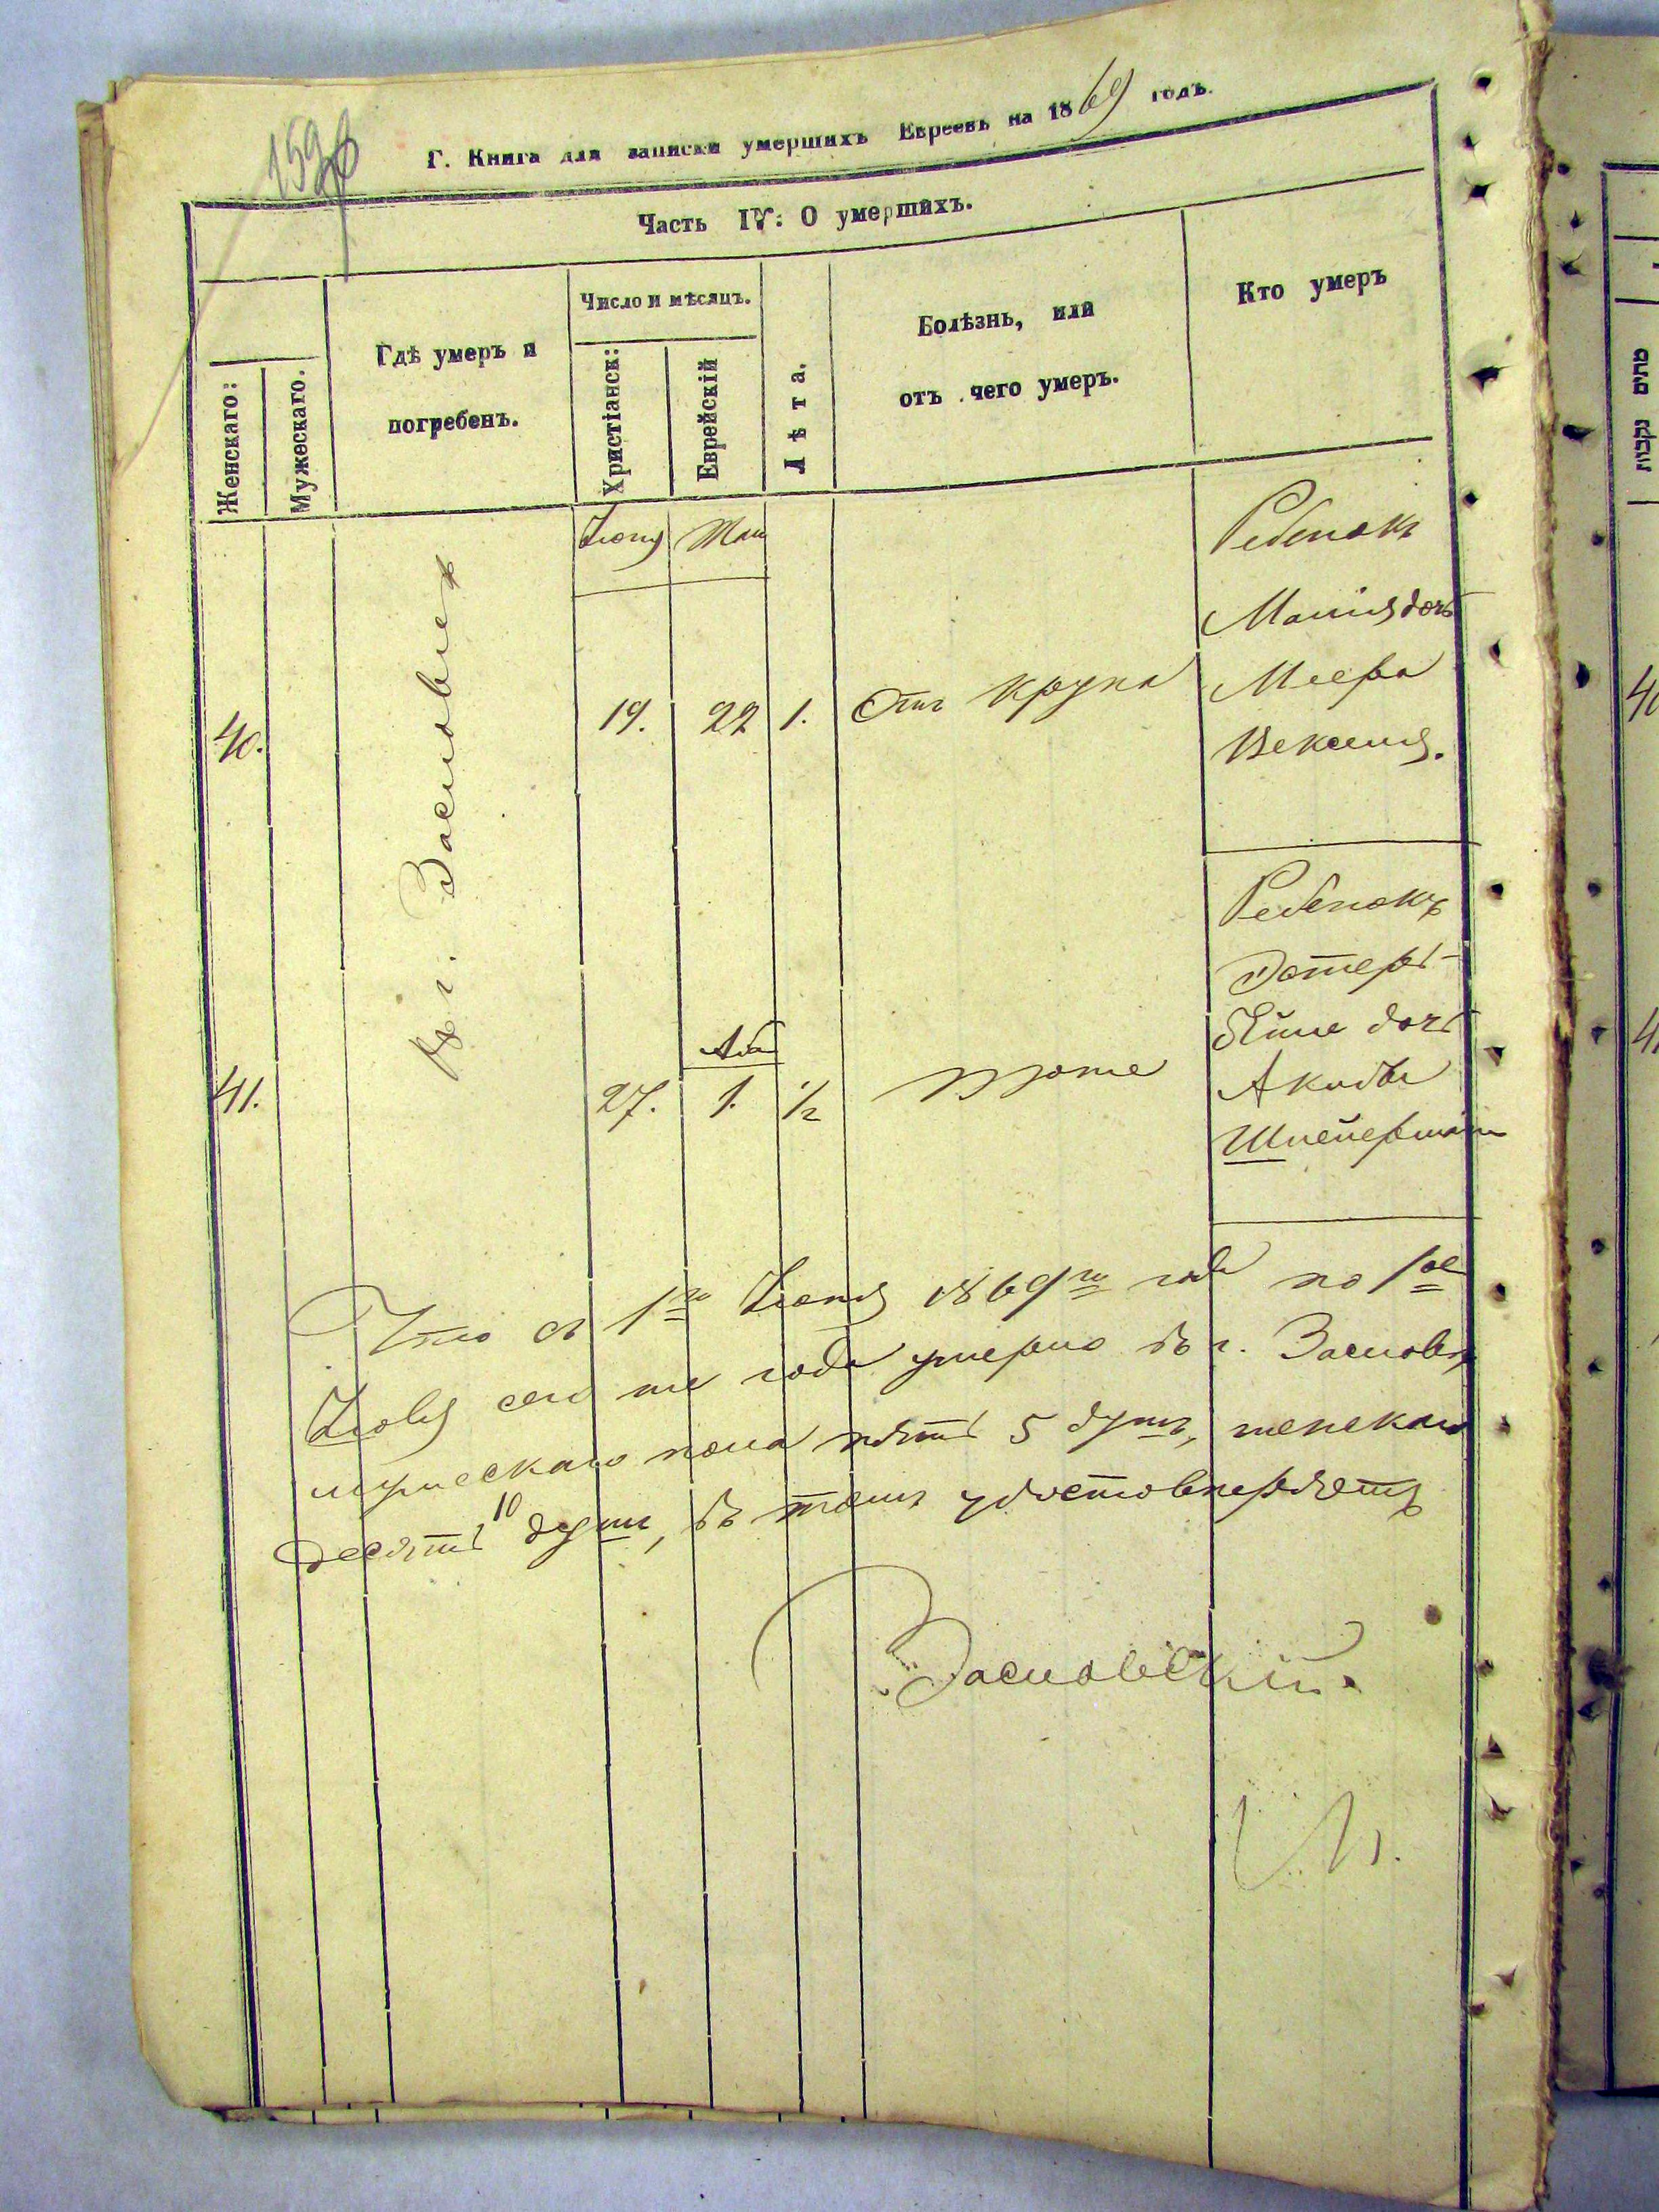 Г. Книга для записки умершихъ Евреевъ на 1869 годъ.
Часть IV: О умершихъ.
Женскаго:
Мужескаго.
Гдѣ умеръ и
погребенъ.
Число и мѣсяцъ.
Христіанск:
Еврейскій
Лѣта.
Болѣзнь, или
отъ чего умеръ.
Кто умеръ
въ г. Заславлѣ
40.
19.
22
1.
Отъ крупа
Ребенокъ
дочь
Меера
41.
27.
Ава
1.
1/2
тоже
Ребенокъ
Эстеръ-
дочь
Акивы
Шнейерман
Что съ 1го 1869го года по 1ое
сего же года умерло въ г. Заславлѣ
мужескаго пола пять 5 душъ, женскаго
десять 10 душъ, въ томъ удостовѣряетъ
Заславскій.
מתים נקבות